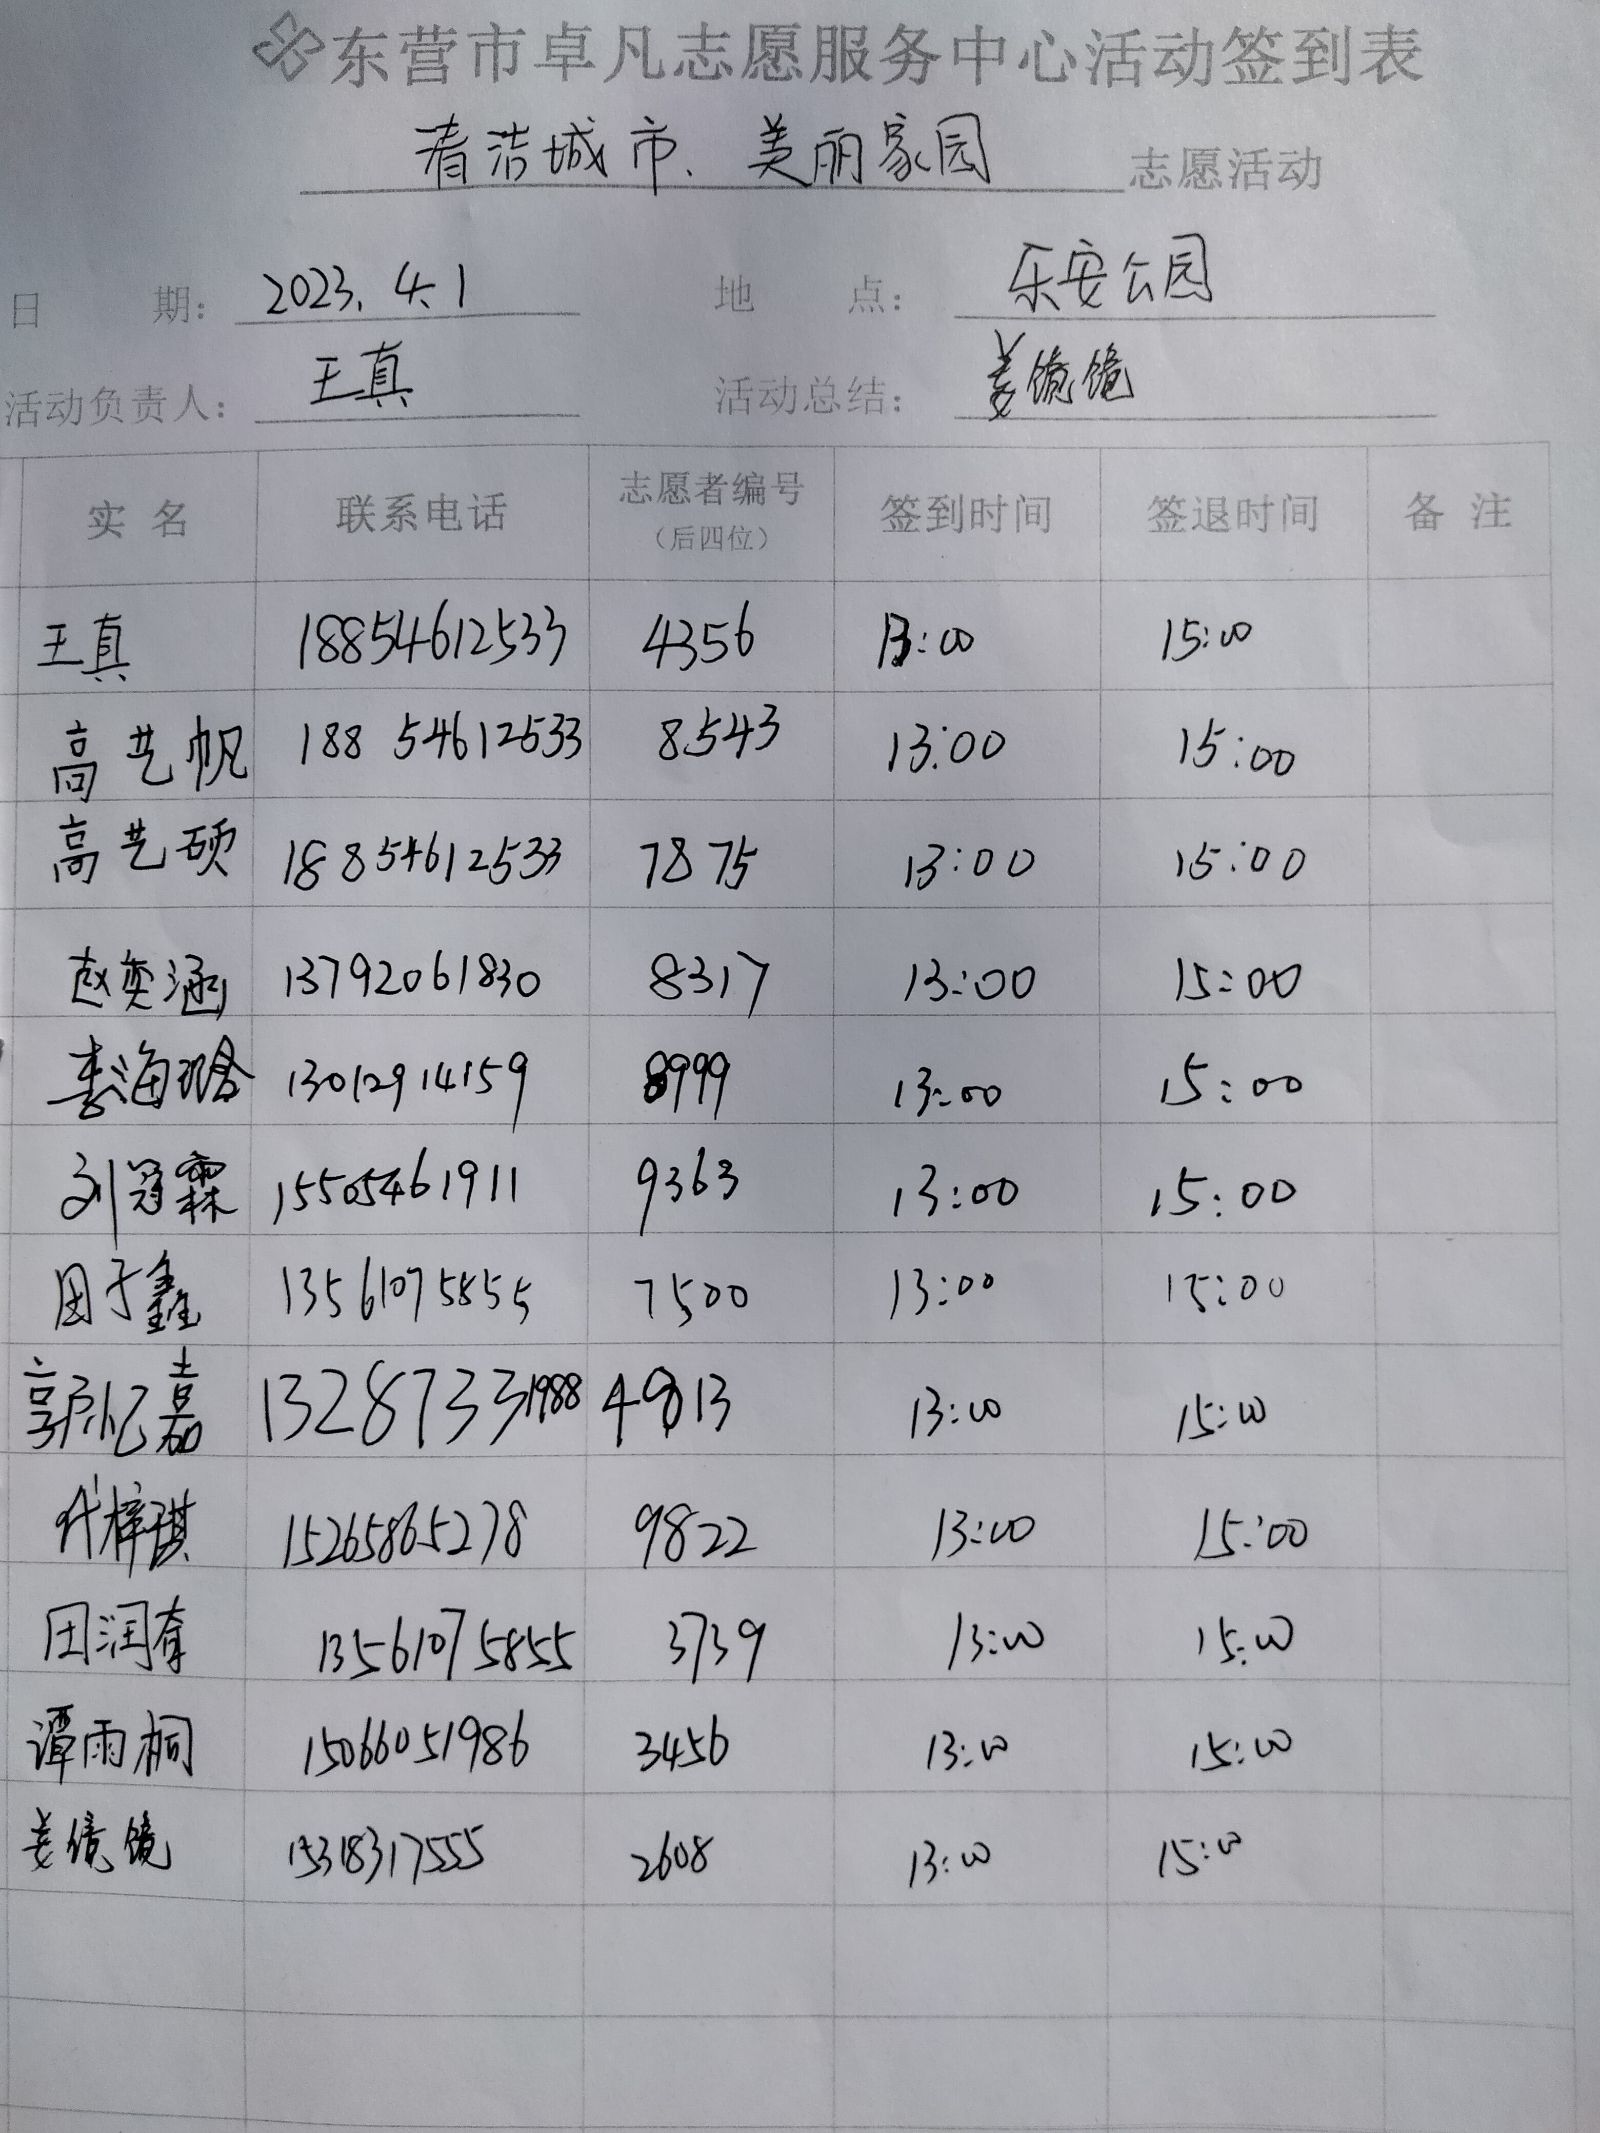 东营市卓凡志愿服务中心活动签到表
清洁城市、美丽家园 志愿活动
日 期: 2023.4.1 地 点: 乐安公园
活动负责人: 王真 活动总结: 姜镜镜
实 名 联系电话 志愿者编号 签到时间 签退时间 备 注
(后四位)
王真 18854612533 4356 13:00 15:00
高艺帆 18854612533 8543 13:00 15:00
高艺硕 18854612533 7875 13:00 15:00
赵奕涵 13792061830 8317 13:00 15:00
李海璐 13012914159 8999 13:00 15:00
刘冠霖 15505461911 9363 13:00 15:00
田于鑫 13561075855 7500 13:00 15:00
郭忆嘉 13287331988 13:00 15:00
代梓琪 15265865278 9822 13:00 15:00
田润 13561075855 3739 13:00 15:00
谭雨桐 15066051986 3456 13:00 15:00
姜镜镜 15318317555 2608 13:00 15:00